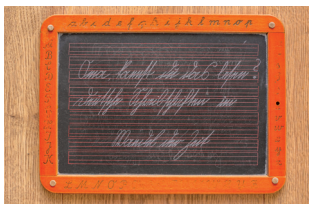 a b c d e f g h i j k l m n o p
Oma, kannst du das lesen?
deutsche Schreibschriften im
Wandel der Zeit